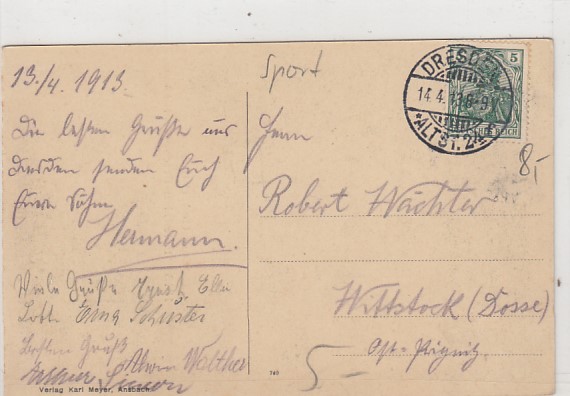 13./4. 1913.
Die besten Grüße aus
Dresden senden Euch
Eure Söhne
Hermann.
Viele Grüße
Lotte Erna Schuster
Besten Gruß
Walther
Simon
Verlag Karl Meyer, Ansbach.
Sport
DRESDEN
14.4.13.8-9
*ALTST. 24
5
REICH
8,-
Herrn
Robert Wächter
Wittstock (Dosse)
Ost-Prignitz.
5-